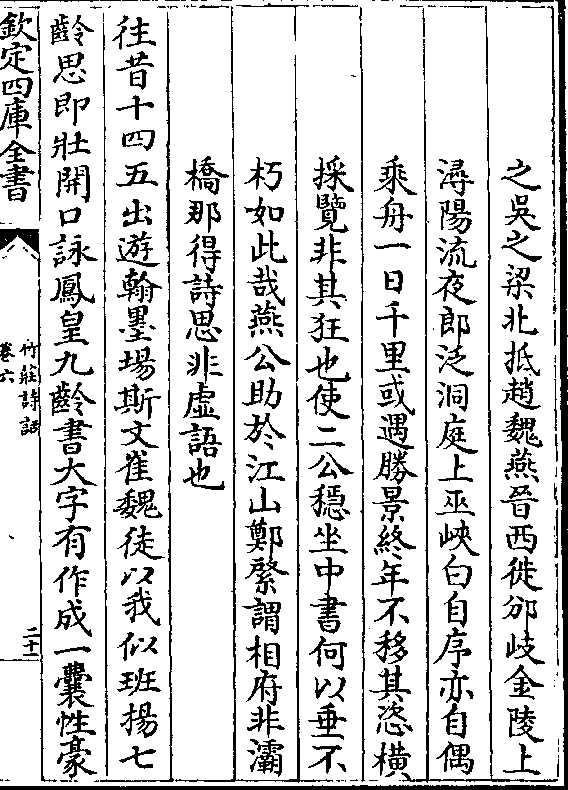 之吳之梁北抵趙魏燕晉西徙邠岐金陵上
潯陽流夜郎泛洞庭上巫峽白自序亦自偶
乘舟一日千里或遇勝景終年不移其恣橫
採覽非其狂也使二公穩坐中書何以垂不
朽如此哉燕公助於江山鄭綮謂相府非灞
橋那得詩思非虛語也
往昔十四五出遊翰墨場斯文崔魏徒以我似班揚七
齡思即壯開口詠鳳皇九齡書大字有作成一囊性豪
欽定四庫全書
竹莊詩話
卷六
二十